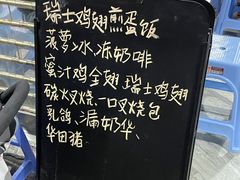 瑞士鸡翅煎蛋饭
菠萝冰、冻奶啡
蜜汁鸡全翅 瑞士鸡翅
碳叉烧、一口叉烧包
乳鸽、漏奶华
华田猪